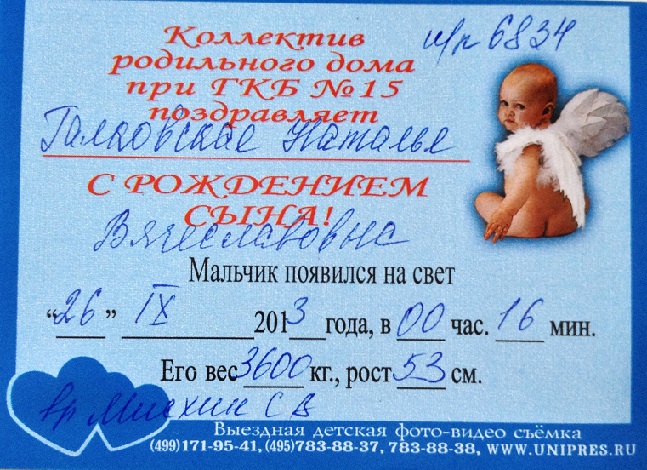 Коллектив и/р 6834
родильного дома
при ГКБ №15
поздравляет
Галковская Наталья
С РОЖДЕНИЕМ
СЫНА!
Вячеславовна
Мальчик появился на свет
"26" IX 2013 года, в 00 час. 16 мин.
Его вес 3600 кг., рост 53 см.
вр Мисхин С В
Выездная детская фото-видео съёмка
(499)171-95-41, (495)783-88-37, 783-88-38, WWW.UNIPRES.RU